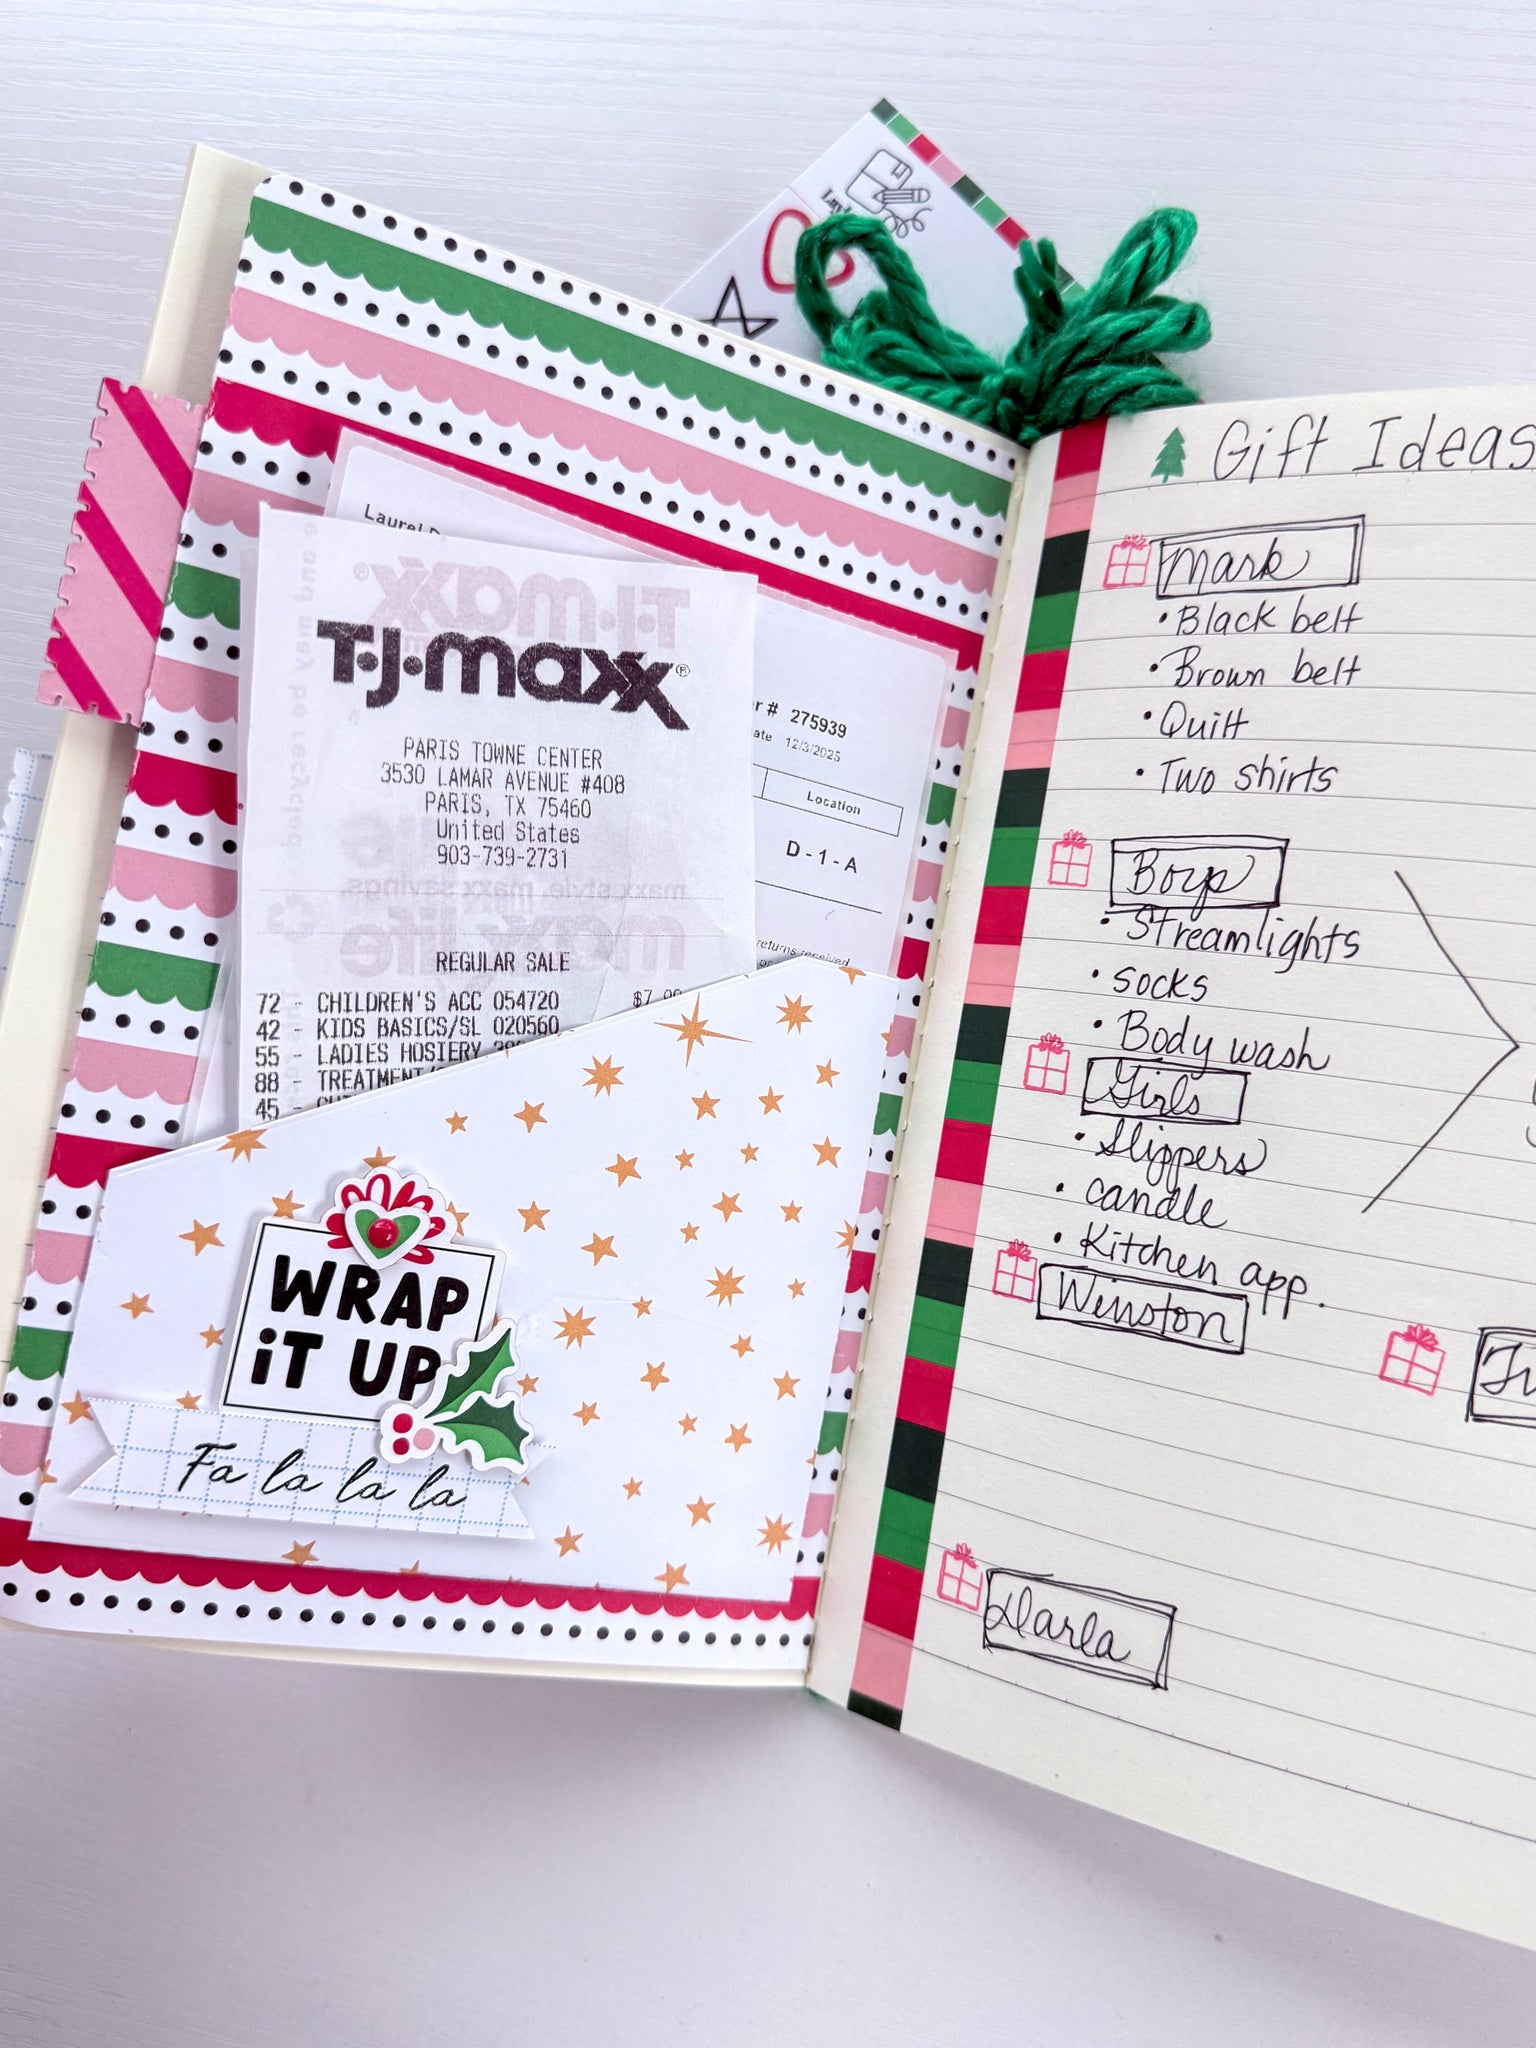 Laurel
T.J.maxx®
PARIS TOWNE CENTER
3530 LAMAR AVENUE #408
PARIS, TX 75460
United States
903-739-2731
REGULAR SALE
72 - CHILDREN'S ACC 054720 $7.99
42 - KIDS BASICS/SL 020560
55 - LADIES HOSIERY
88 - TREATMENT
45 -
# 275939
12/3/2025
Location
D-1-A
returns received
WRAP
iT UP
Fa la la la
Gift Ideas
Mark
• Black belt
• Brown belt
• Quilt
• Two shirts
Boys
• Streamlights
• socks
• Body wash
Girls
• Slippers
• candle
• Kitchen app.
Winston
Darla